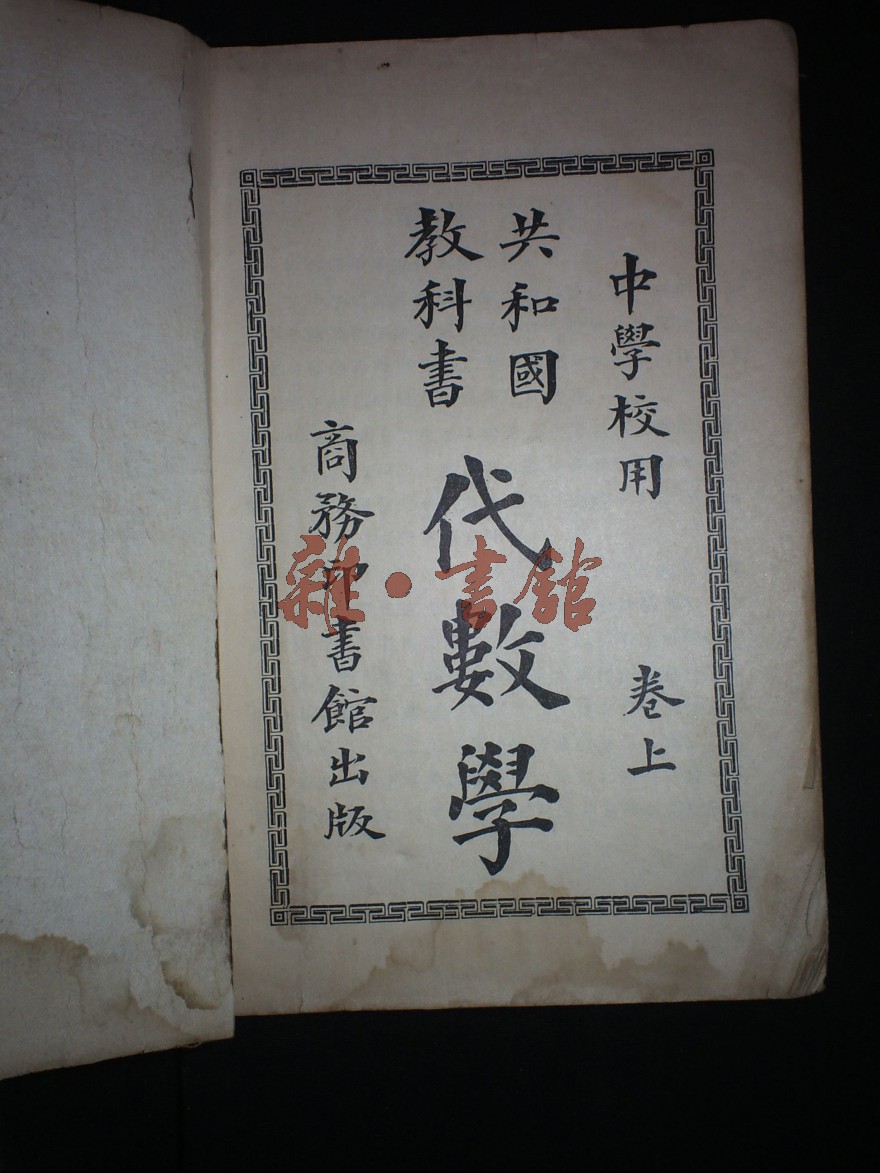 中學校用 卷上
共和國
教科書
代數學
商務印書館出版
雜·書館